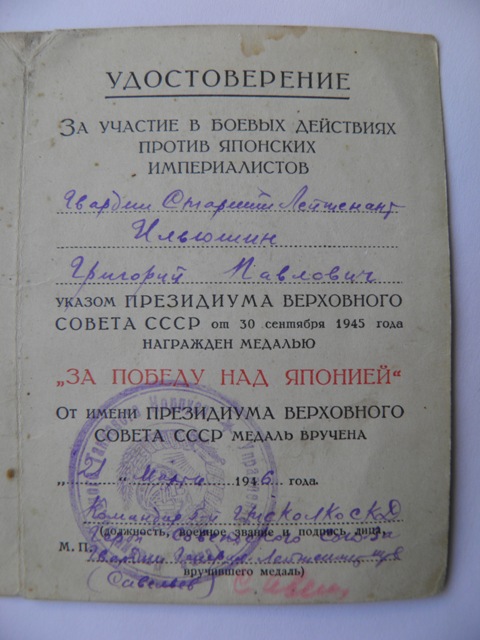 УДОСТОВЕРЕНИЕ
ЗА УЧАСТИЕ В БОЕВЫХ ДЕЙСТВИЯХ
ПРОТИВ ЯПОНСКИХ
ИМПЕРИАЛИСТОВ
Гвардии Старший Лейтенант
Ильюшин
Григорий Павлович
УКАЗОМ ПРЕЗИДИУМА ВЕРХОВНОГО
СОВЕТА СССР от 30 сентября 1945 года
НАГРАЖДЕН МЕДАЛЬЮ
„ЗА ПОБЕДУ НАД ЯПОНИЕЙ“
ОТ ИМЕНИ ПРЕЗИДИУМА ВЕРХОВНОГО
СОВЕТА СССР МЕДАЛЬ ВРУЧЕНА
„21“ Марта 1946 года.
Командир
Герой Советского Союза
(должность, военное звание и подпись лица,
М. П. Гвардии Генерал Лейтенант
вручившего медаль)
(Савельев)